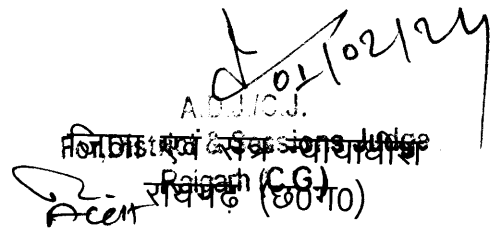 01/02/24
A.D.J./C.J.
For District & Sessions Judge
जिला एवं सत्र न्यायाधीश
Raigarh (C.G.)
रायगढ़ (छ0ग0)